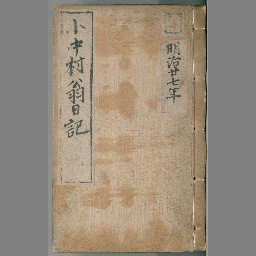 明治廿七年
小中村翁日記